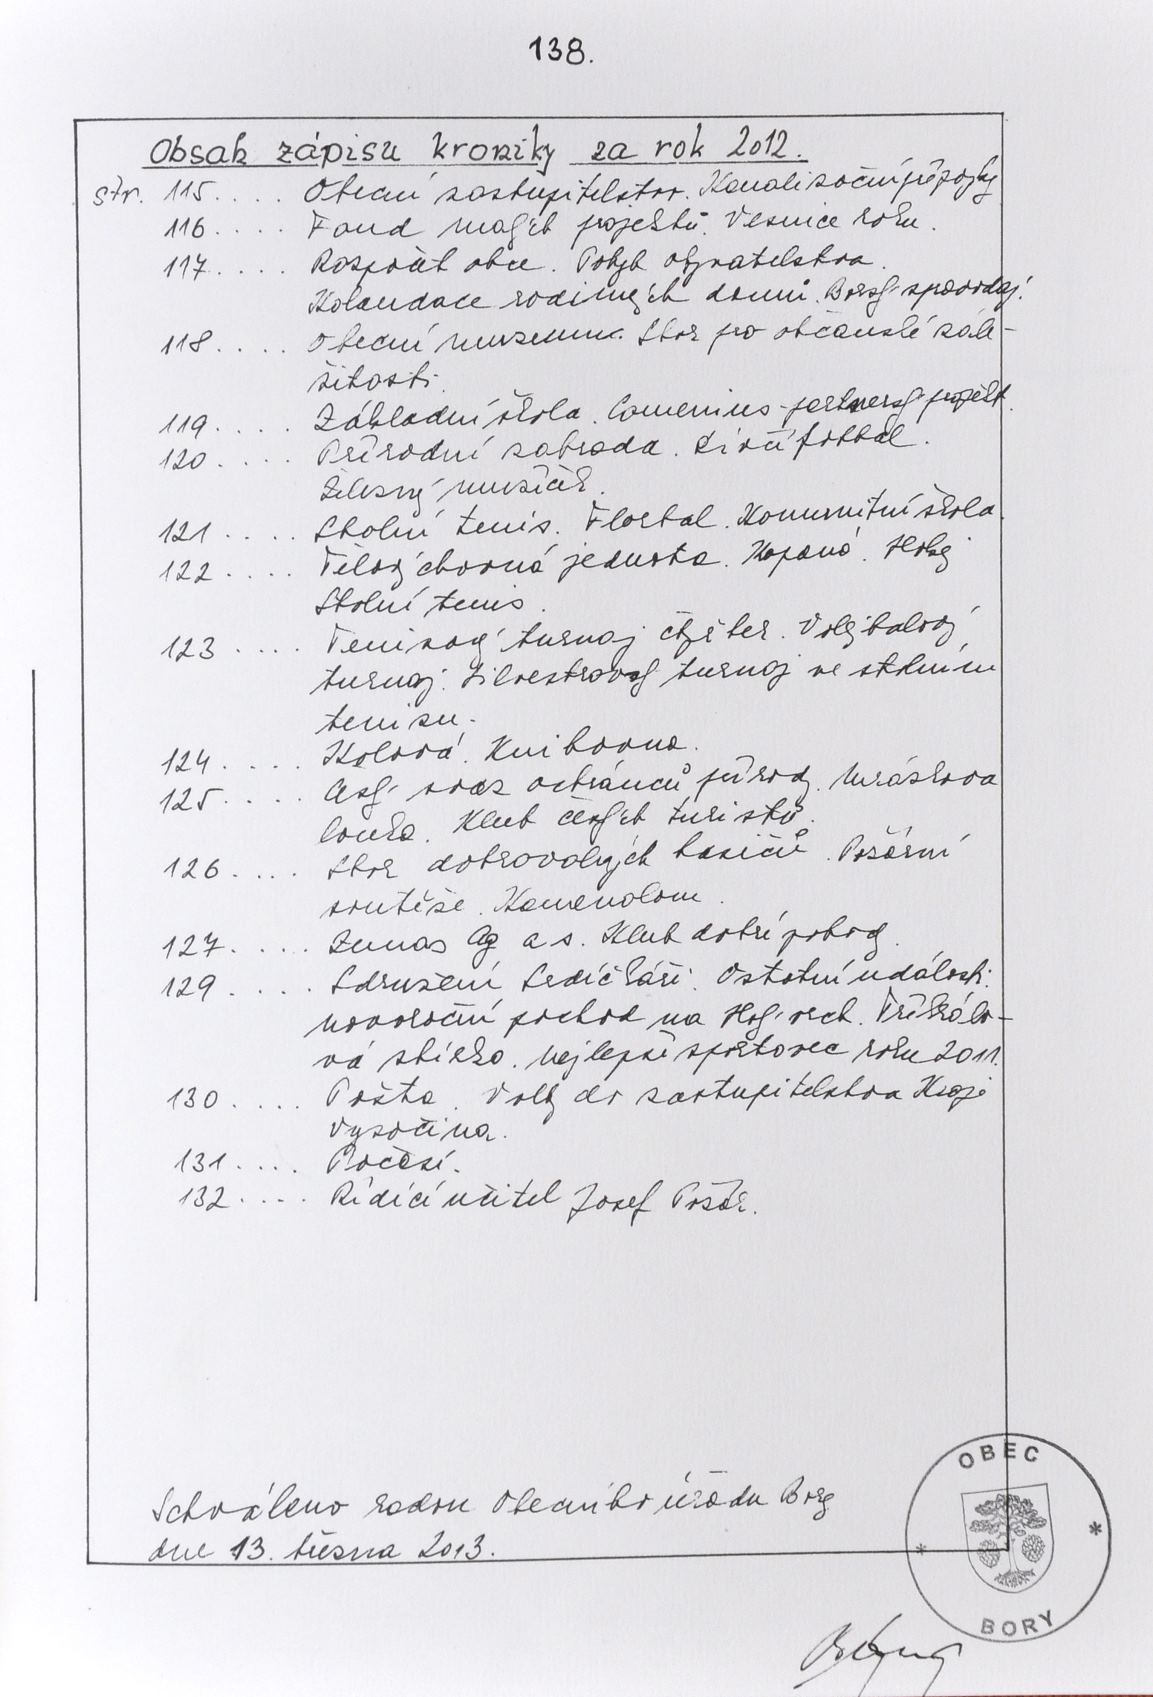 138.
Obsah zápisu kroniky za rok 2012.
str. 115.... Obecní zastupitelstvo. Kanalizační přípojky
116.... Fond malých projektů. Vesnice roku.
117.... Rozpočet obce. Pohyb obyvatelstva.
Kolaudace rodinných domů. Borský zpravodaj.
118.... Obecní muzeum. Sbor pro občanské zále-
žitosti.
119.... Základní škola. Comenius - partnerský projekt.
120.... Přírodní zahrada. Živý fotbal.
Železný mužíček.
121.... Stolní tenis. Florbal. Komunitní škola.
122.... Tělovýchovná jednota. Kopaná. Hokej
Stolní tenis.
123.... Tenisový turnaj čtyřher. Volejbalový
turnaj. Silvestrovský turnaj ve stolním
tenisu.
124.... Kolová. Knihovna.
125.... sraz ochránců přírody. Mrázkova
louka. Klub českých turistů.
126.... Sbor dobrovolných hasičů. Požární
soutěže. Kamenolom.
127.... Zemas Ag a s. Klub dobré pohody.
129.... Sdružení Srdíčkáři. Ostatní události:
novoroční pochod na vrch. Tříkrálo-
vá sbírka. nejlepší sportovec roku 2011.
130.... Pošta. Volby do zastupitelstva Kraje
Vysočina.
131.... Počasí.
132.... Řídící učitel Josef Požár.
Schváleno radou Obecního úřadu Bory
dne 13. března 2013.
OBEC
* *
BORY